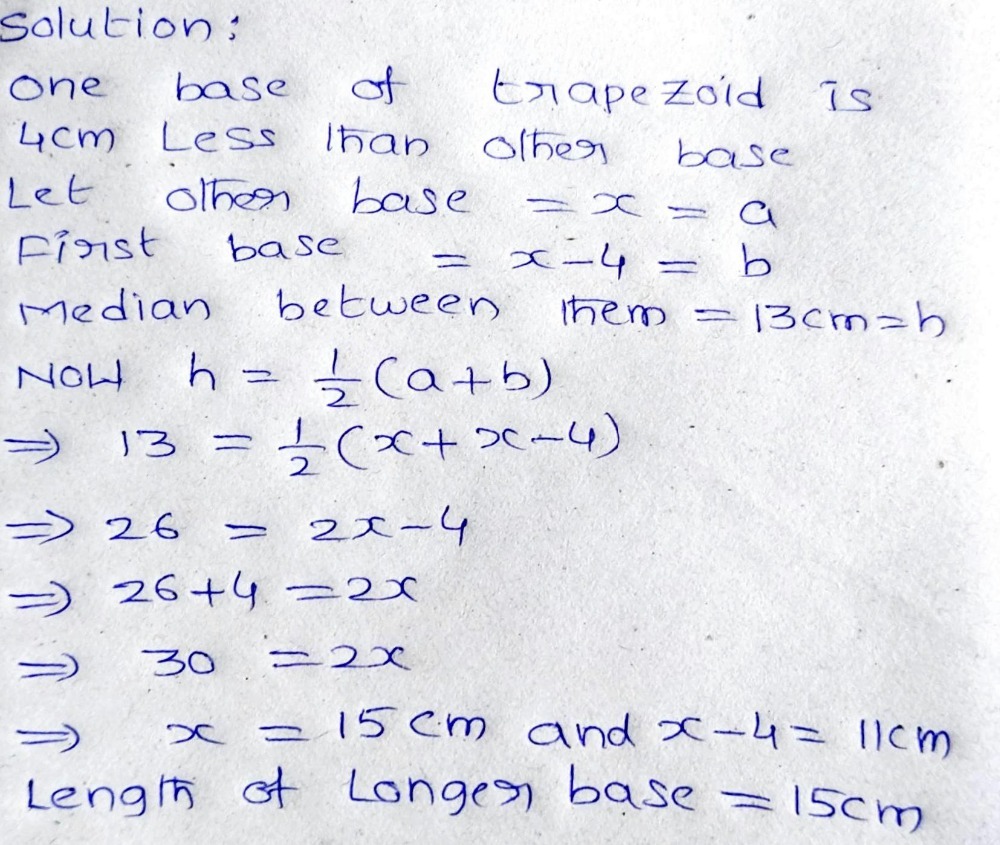 Solution:
One base of trapezoid is
4cm Less than other base
Let other base = x = a
First base = x-4 = b
Median between them = 13cm=h
NOW h = 1/2 (a+b)
⇒ 13 = 1/2 (x+x-4)
⇒ 26 = 2x-4
⇒ 26+4 = 2x
⇒ 30 = 2x
⇒ x = 15 cm and x-4 = 11cm
Length of Longer base = 15cm